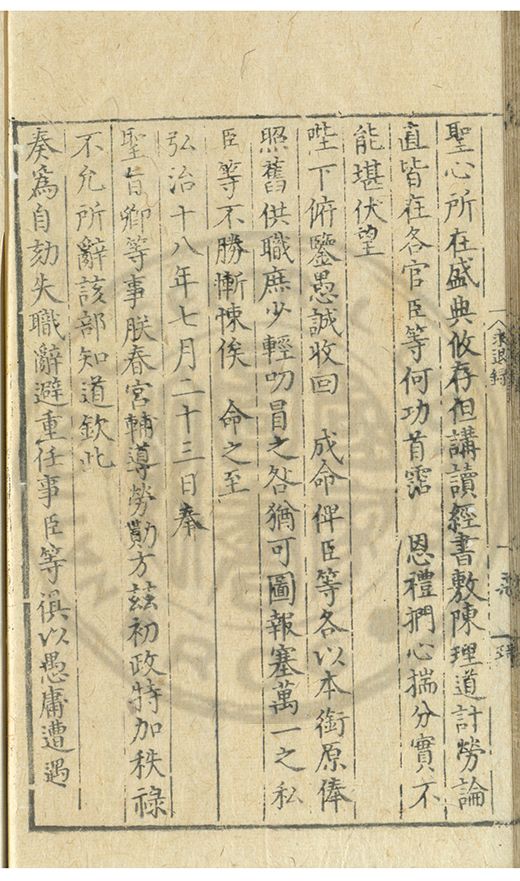 聖心所在盛典攸存但講讀經書敷陳理道計勞論
直皆在各官臣等何功首霑　恩禮捫心揣分實不
能堪伏望
陛下俯鑒愚誠收回　成命俾臣等各以本銜原俸
照舊供職庶少輕叨冒之咎猶可圖報塞萬一之私
臣等不勝慚悚俟　命之至
弘治十八年七月二十三日奉
聖旨卿等事朕春宮輔導勞勩方茲初政特加秩祿
不允所辭該部知道欽此
奏爲自劾失職辭避重任事臣等俱以愚庸遭遇